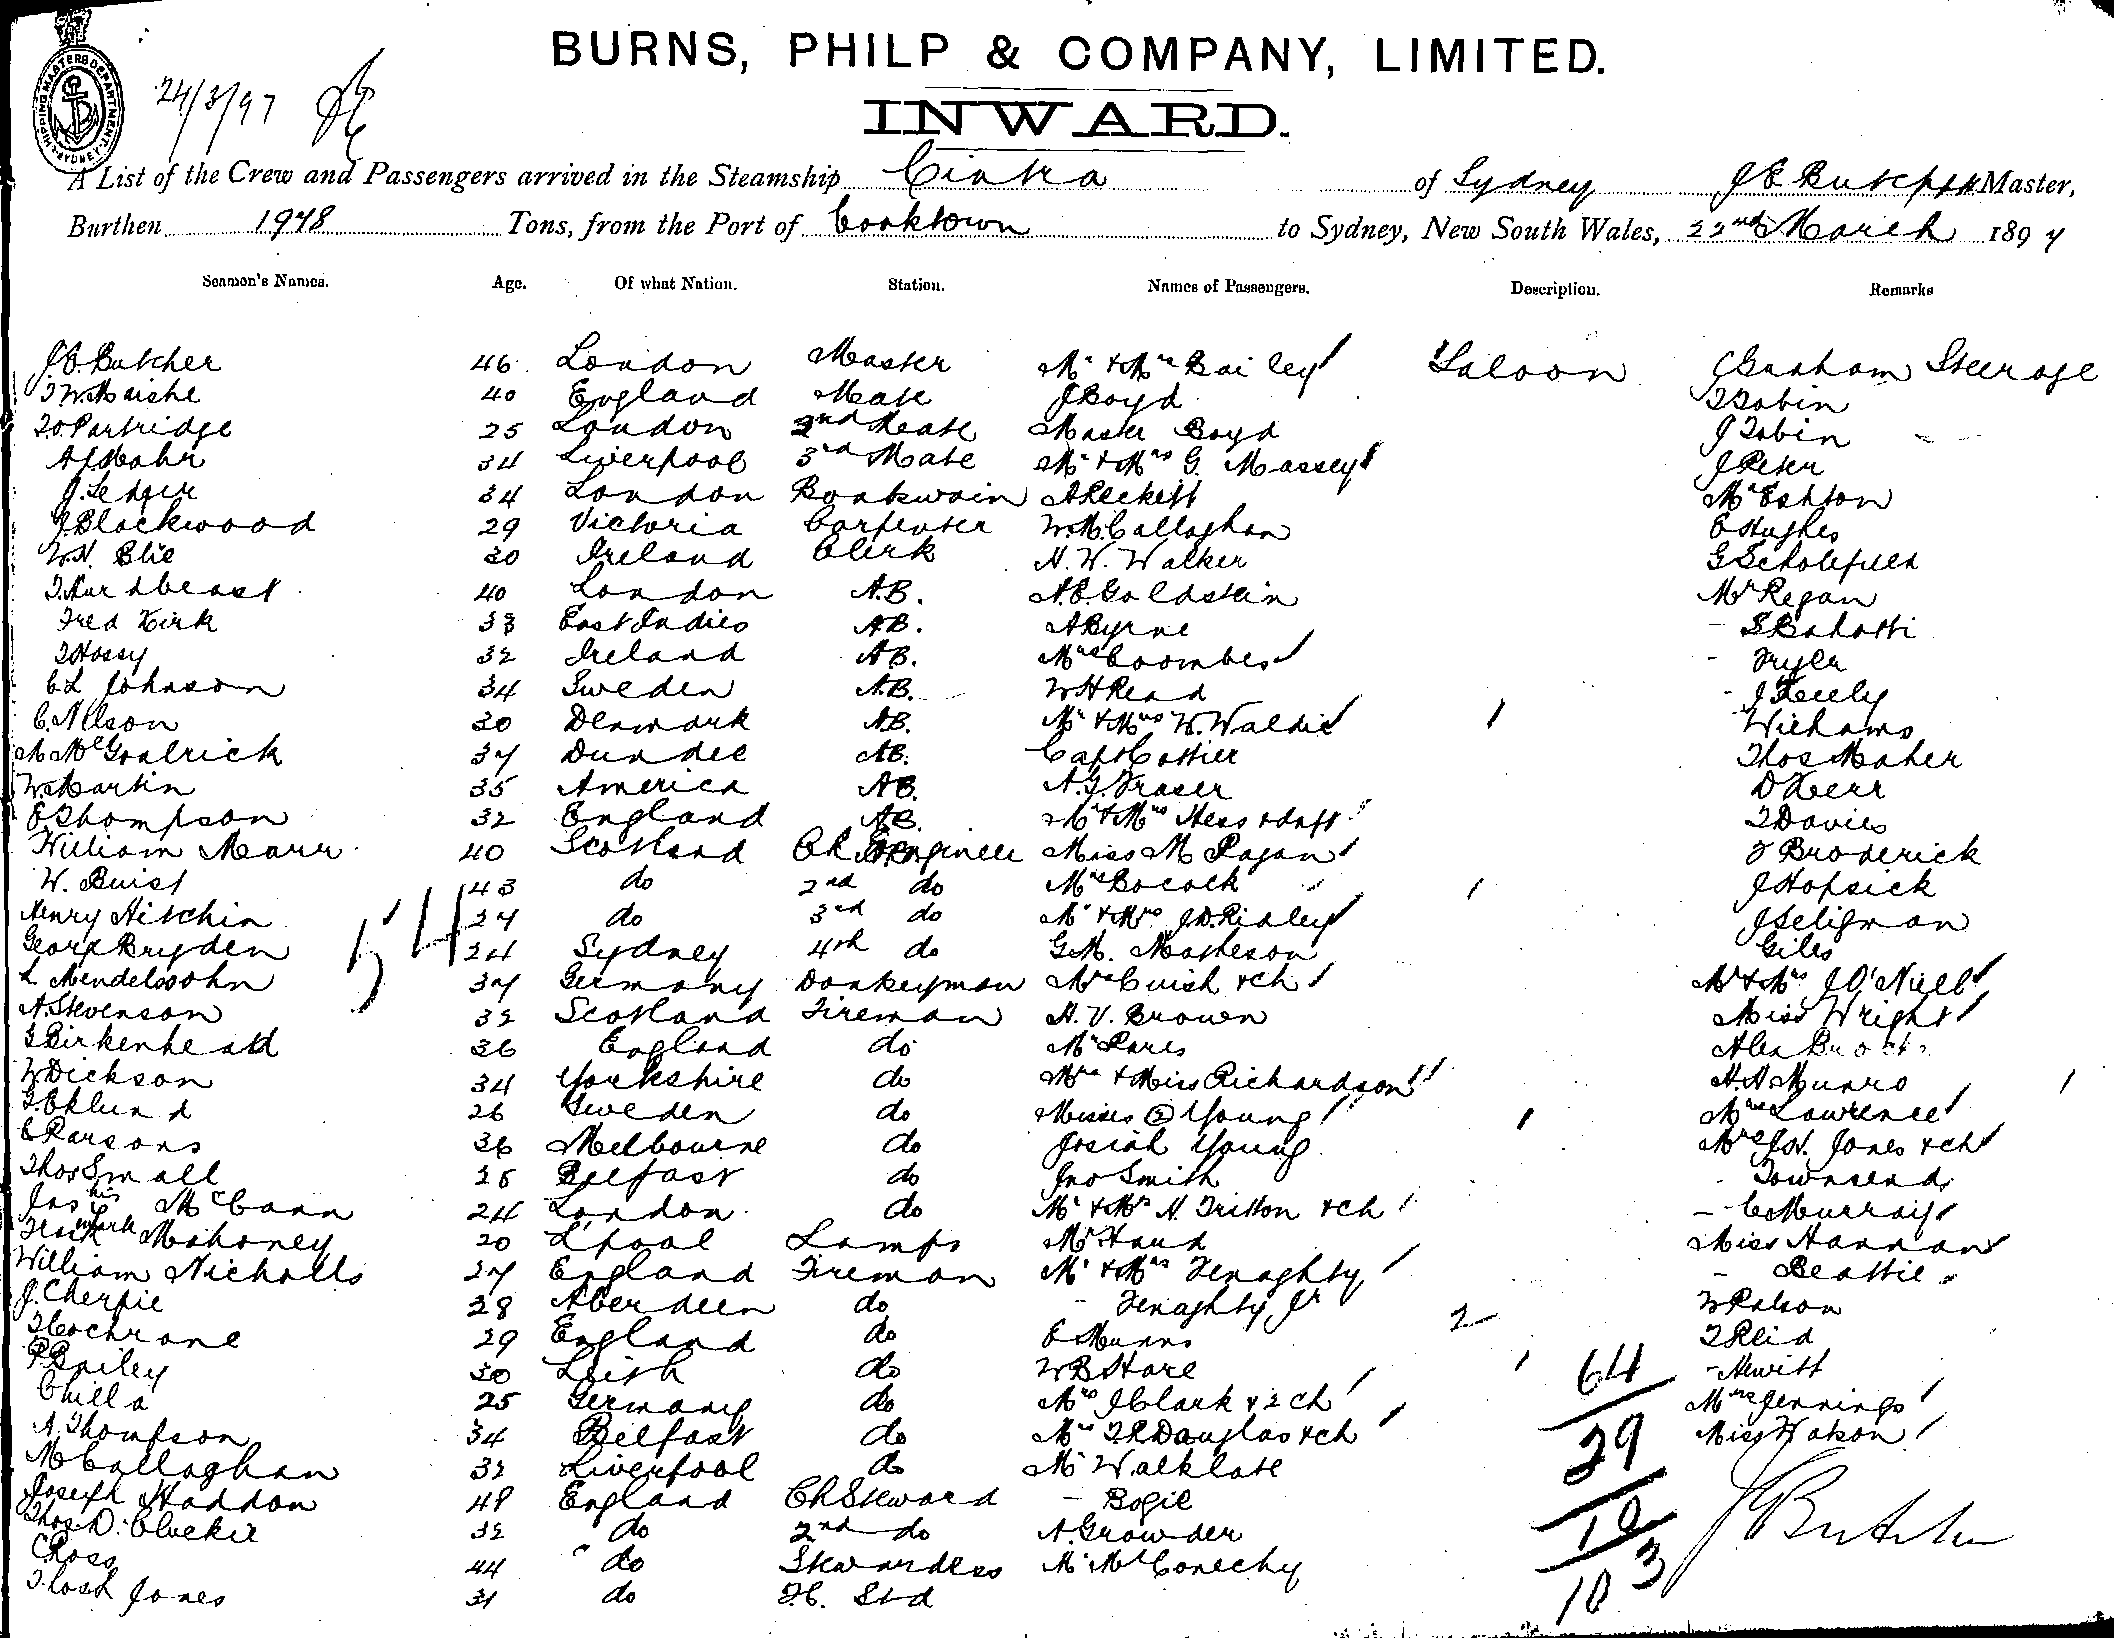 SHIPPING MASTERS DEPARTMENT SYDNEY
24/3/97
BURNS, PHILP & COMPANY, LIMITED.
INWARD.
A List of the Crew and Passengers arrived in the Steamship Cintra of Sydney J B Butcher Master,
Burthen 1978 Tons, from the Port of Cooktown to Sydney, New South Wales, 22nd March 1897
Seamen's Names. Age. Of what Nation. Station. Names of Passengers. Description. Remarks
J.B. Butcher 46 London Master Mr & Mrs Bailey Saloon J Graham Steerage
40 England Mate J Boyd T Tobin
T.O. Partridge 25 London 2nd Mate Master Boyd J Tobin
34 Liverpool 3rd Mate Mr & Mrs G. Massey J Peter
J. Ledger 34 London Boatswain A Peckett Mr Eshton
J. Blackwood 29 Victoria Carpenter W.M. Callaghan E Hughes
W.H. Blie 30 Ireland Clerk H. W. Walker G Scholefield
40 London A.B. A.E. Goldstein Mr Regan
Fred Kirk 33 East Indies A.B. A Byrne
T Hossy 32 Ireland A.B. Mrs Coombes Fryer
C.L Johnson 34 Sweden A.B. W H Read J Keely
C. Nilson 30 Denmark A.B. Mr & Mrs W. Waldie Williams
M McGoalrick 37 Dundee A.B. Capt Cottier Thos Maher
W Martin 35 America A.B. A.G. Fraser D Kerr
E Thompson 32 England A.B. Mr & Mrs Hess & daft T Davies
William Marr 40 Scotland Ch Engineer Miss M Pagan J Broderick
W. Buist 43 do 2nd do Mrs Bocock J Hopsick
Henry Hitchin 27 do 3rd do Mr & Mrs J.D. Ridley J Seligman
George Bryden 24 Sydney 4th do G.M. Matheson Giles
L Mendelssohn 37 Germany Donkeyman Mrs Cuish & ch Mr & Mrs J O'Niell
54
A. Stevenson 32 Scotland Fireman H. V. Brown Miss Wright
G Birkenhead 36 England do Mr Paris Alex Brock
W Dickson 34 Yorkshire do Mrs & Miss Richardson H.A Munro
G. Eklund 26 Sweden do Misses (2) Young Mrs Lawrence
C Parsons 36 Melbourne do Josiah Young Mrs J.W. Jones & ch
Thos Small 25 Belfast do Jno Smith Townsend
Jas his McCann 24 London do Mr & Mrs H. Tritton & ch - C Murray
mark Mahoney 20 L'pool Lamps Mr Hand Miss Hannan
William Nicholls 27 England Fireman Mr & Mrs Fenaghty - Beattie
J. Cherpie 28 Aberdeen do - Fenaghty Jr W Palson
T Cochrane 29 England do E Munns 2 T Reid
P. Bailey 30 Leith do W B Hore 64 - Hewitt
C Hilla 25 Germany do Mrs J Clark & 2 ch Mrs Jennings
A. Thompson 34 Belfast do Mrs T.R Douglas & ch 29 Miss Watson
M Callaghan 32 Liverpool do Mr Walklate
Joseph Haddon 49 England Ch Steward - Bogie 10
Thos. D. Cluckie 32 do 2nd do A. Growder J Butcher
C Ross 44 do Stewardess Mr McConechy 3
Jones 31 do F.C. Std 103